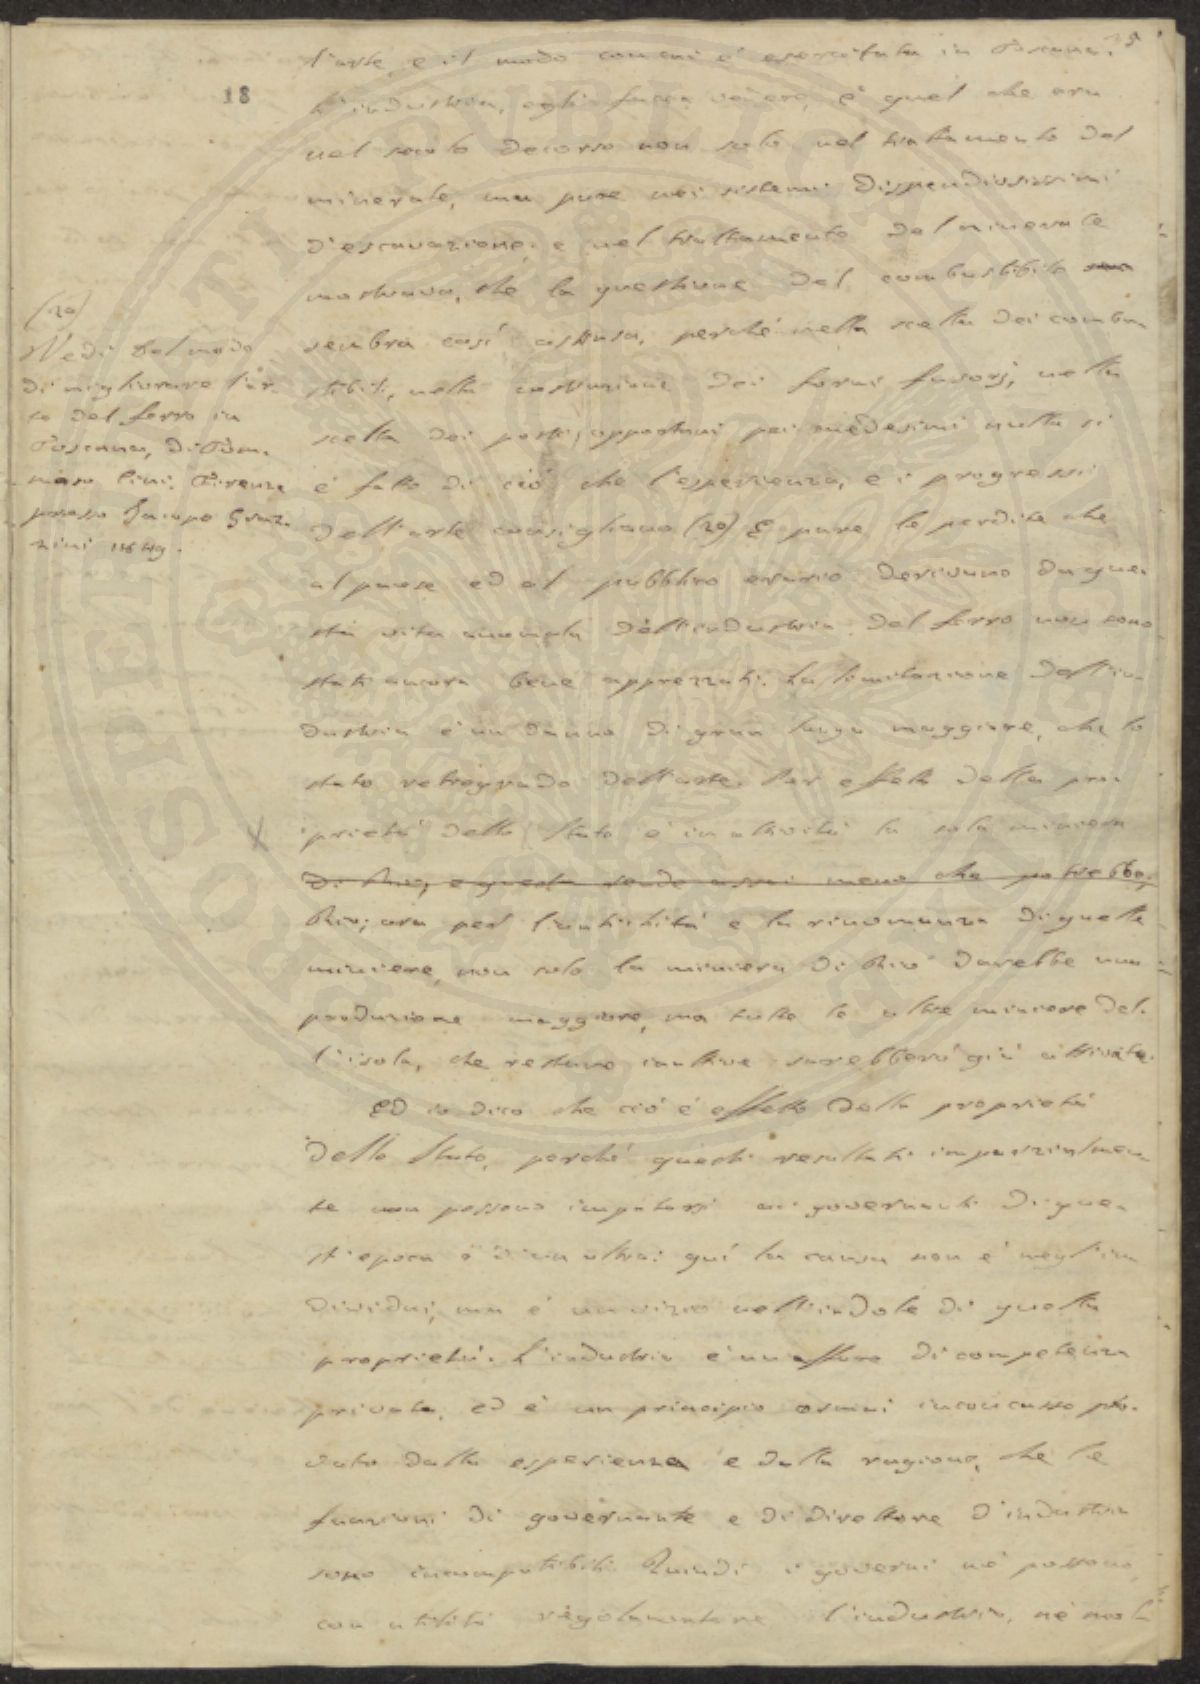 35
18
l'arte, e il modo con cui è esercitata in Toscana.
L'industria, egli faceva vedere, è quel che era
nel secolo decorso non solo nel trattamento del
minerale, ma pure nei sistemi dispendiosissimi
d'escavazione; e nel trattamento del minerale
mostrava, che la questione del combustibile
sembra così astrusa, perché nella scelta dei combu-
stibili, nella costruzione dei forni fusorj, nella
scelta dei posti opportuni pei medesimi nulla si
è fatto di ciò che l'esperienza, e i progressi
dell'arte consigliano (20) E pure le perdite che
al paese ed al pubblico erario derivano da que-
sta vita anomala dell'industria del ferro non sono
stati ancora bene apprezzati. La limitazione dell'in-
dustria è un danno di gran lunga maggiore, che lo
stato retrogrado dell'arte. Per effetto della pro-
prietà dello Stato è in attività la sola miniera
di Rio, e questa rende assai meno che potrebbe;
Rio; ora per l'antichità e la rinomanza di quelle
miniere, non solo la miniera di Rio darebbe una
produzione maggiore, ma tutte le altre miniere del-
l'isola, che restano inattive sarebbero già attivate.
Ed io dico che ciò è effetto della proprietà
dello Stato, perché questi resultati imparzialmen-
te non possono imputarsi ai governanti di que-
st'epoca o d'un'altra: quì la causa non è negl'in
dividui, ma è un vizio nell'indole di quella
proprietà. L'industria è un affare di competenza
privata, ed è un principio ormai inconcusso pro-
vato dalla esperienza e dalla ragione, che le
funzioni di governante e di direttore d'industria
sono incompatibili. Quindi i governi nè possono
con utilità regolamentare l'industria, nè
(20)
Vedi Del modo
di migliorare l'ar-
te del ferro in
Toscana, di Tom-
maso Cini. Firenze
presso Jacopo Graz-
zini 1849.